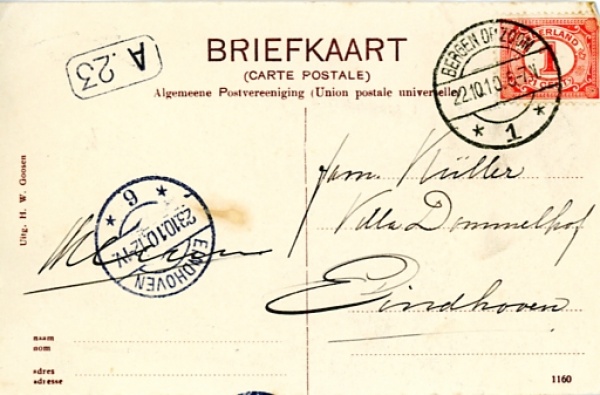 BRIEFKAART
(CARTE POSTALE)
Algemeene Postvereeniging (Union postale universelle)
A.23
BERGEN OP ZOOM
22.10.10. 6-7.N
1
NEDERLAND
1
CENT
Uitg. H. W. Goosen
Fam. Müller
Villa Dommelhof
Eindhoven
EINDHOVEN
23.10.10. 12-1V.
6
naam
nom
adres
adresse
1160